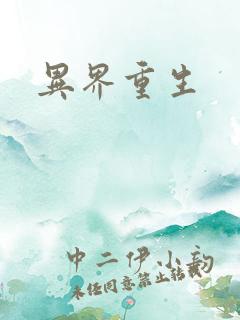 異界重生
中二伊小韵
未经同意禁止转载